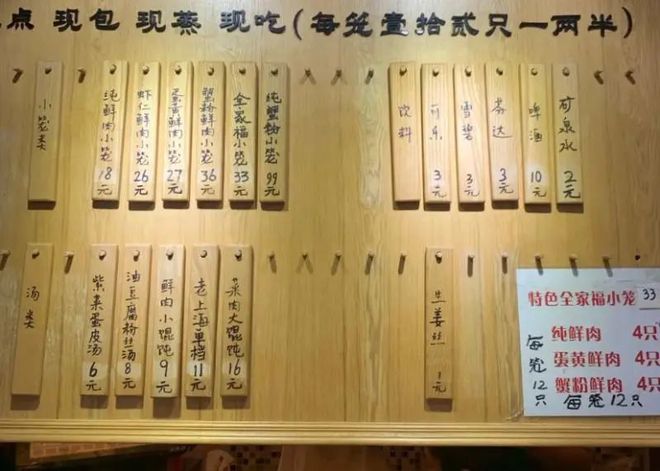 点 现包 现蒸 现吃(每笼壹拾贰只一两半)
小笼类
纯鲜肉小笼 18元
虾仁鲜肉小笼 26元
蛋黄鲜肉小笼 27元
蟹粉鲜肉小笼 36元
全家福小笼 33元
纯蟹粉小笼 99元
饮料
可乐 3元
雪碧 3元
芬达 3元
啤酒 10元
矿泉水 2元
汤类
紫菜蛋皮汤 6元
油豆腐粉丝汤 8元
鲜肉小馄饨 9元
老上海单档 11元
菜肉大馄饨 16元
生姜丝 1元
特色全家福小笼 33
纯鲜肉 4只
蛋黄鲜肉 4只
蟹粉鲜肉 4只
每笼12只
每笼12只